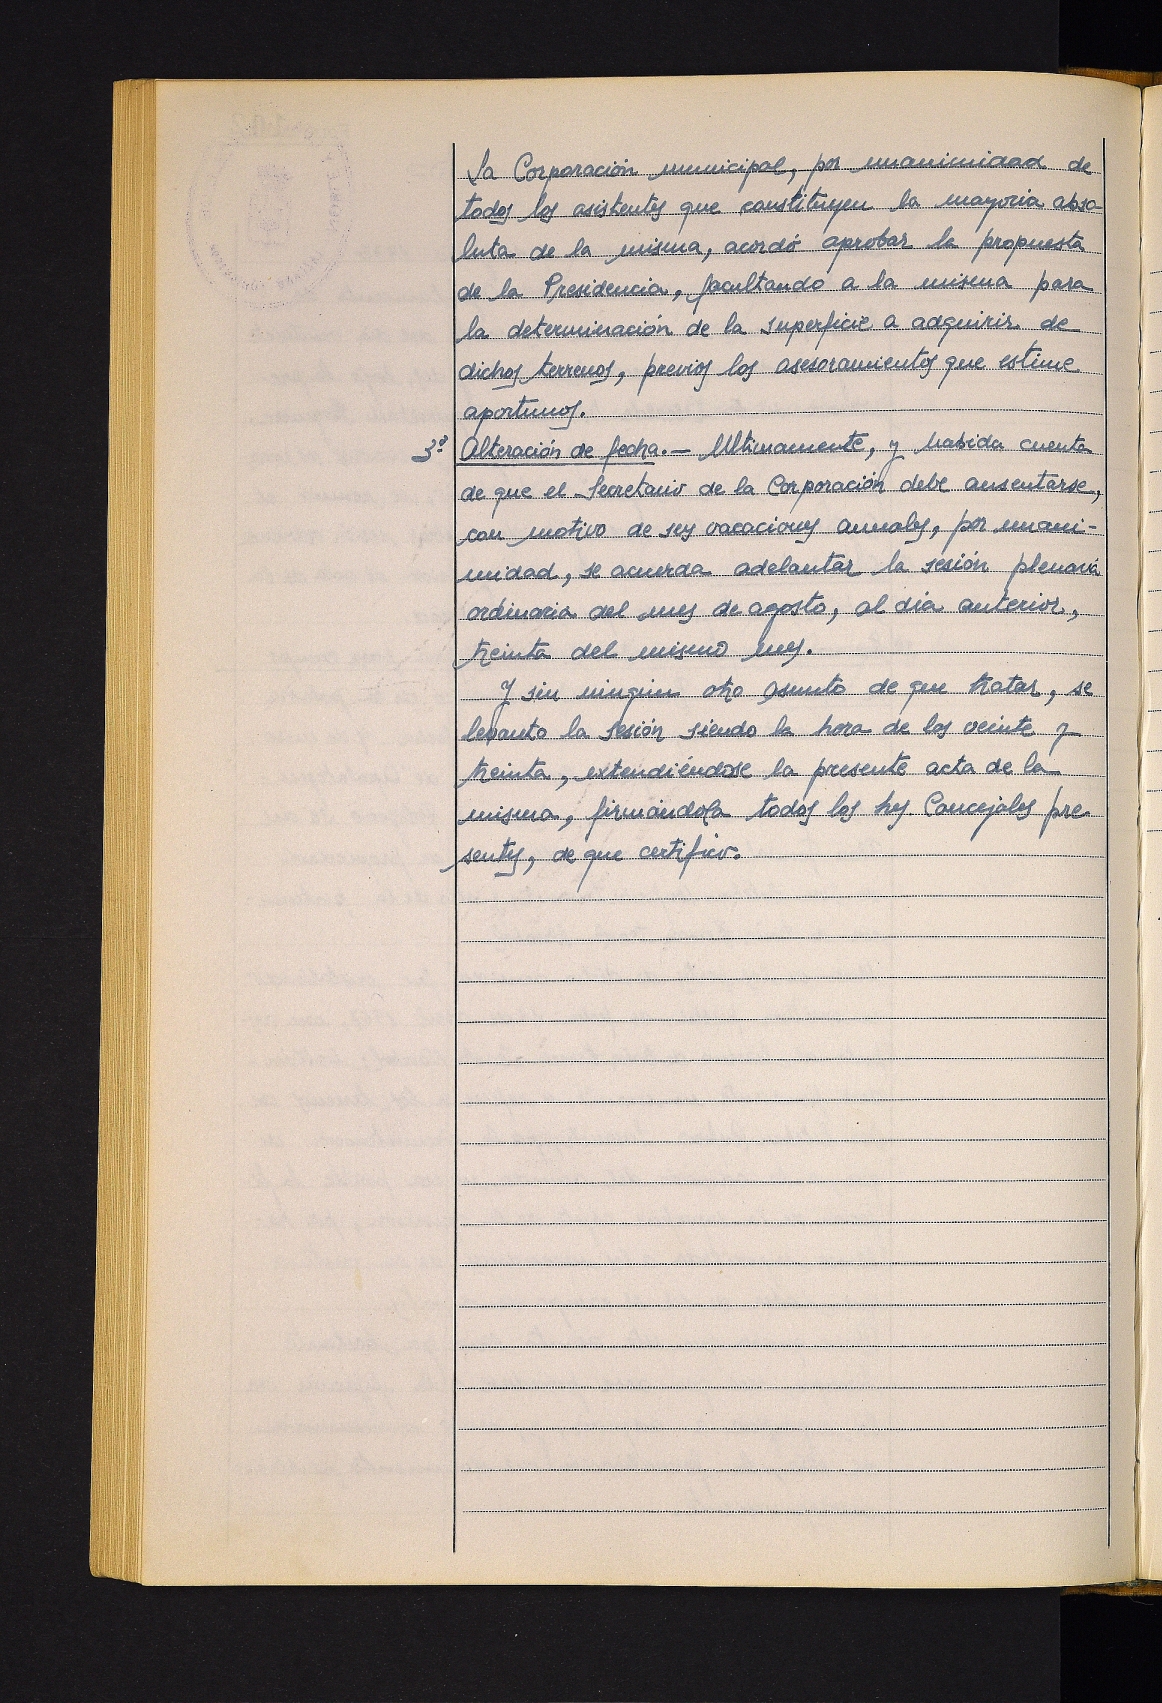 La Corporación municipal, por unanimidad de
todos los asistentes que constituyen la mayoria abso-
luta de la misma, acordó aprobar la propuesta
de la Presidencia, facultando a la misma para
la determinación de la superficie a adquirir de
dichos terrenos, previos los asesoramientos que estime
oportunos.
3º Alteración de fecha.- Ultimamente, y habida cuenta
de que el Secretario de la Corporación debe ausentarse,
con motivo de sus vacaciones anuales, por unani-
midad, se acuerda adelantar la sesión plenaria
ordinaria del mes de agosto, al dia anterior,
treinta del mismo mes.
Y sin ningún otro asunto de que tratar, se
levanto la sesión siendo la hora de las veinte y
treinta, extendiéndose la presente acta de la
misma, firmándola todos los hes. Concejales pre-
sentes, de que certifico.